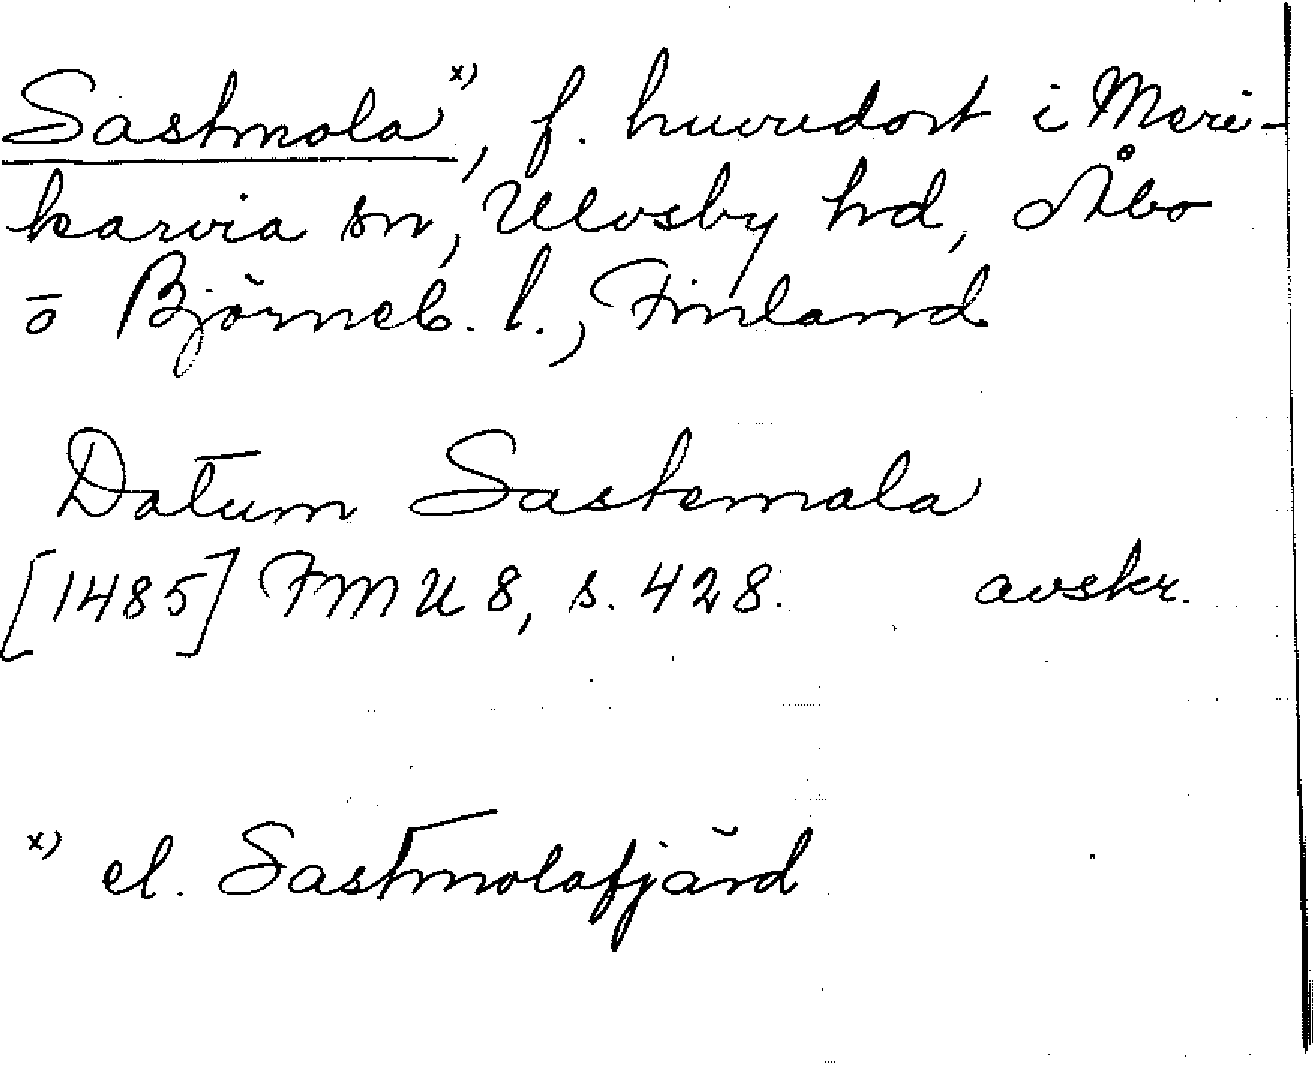 Sastmola x), f. huvudort i Meri-
karvia sn, Ulvsby hd, Åbo
o Björneb. l., Finland
Datum Sastemala
[1485] FMU 8, s. 428. avskr.
x) el. Sastmolafjärd